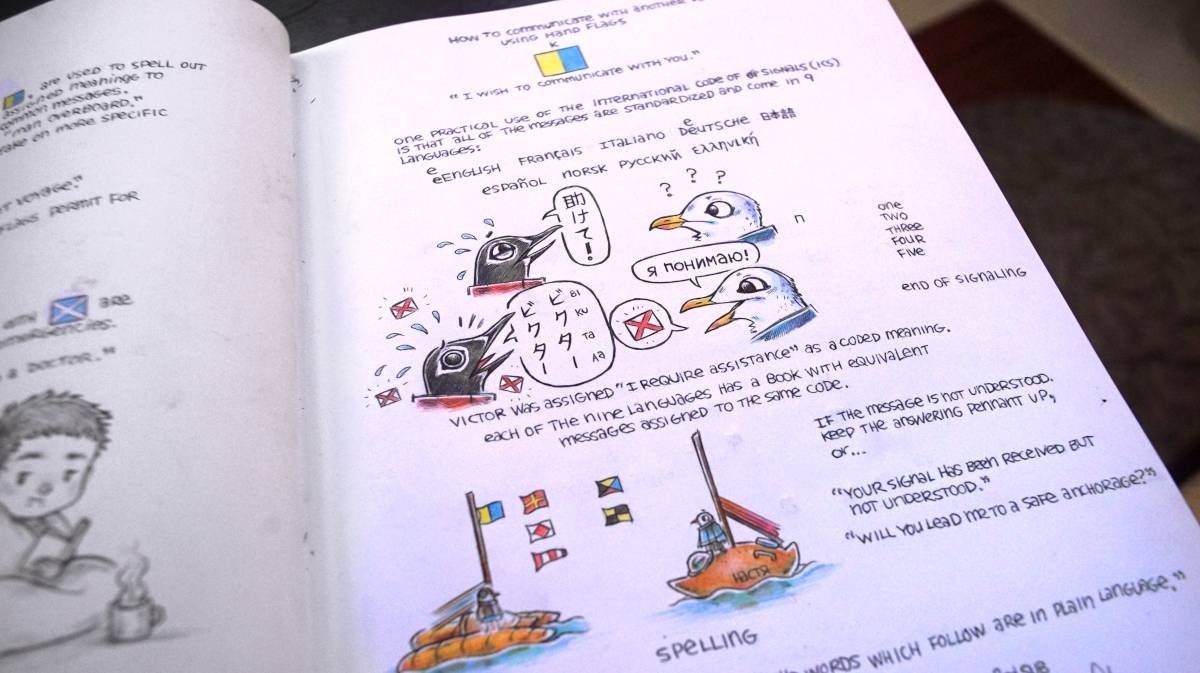 are used to spell out
meanings to
messages.
man overboard."
more specific
voyage."
permit for
with
are
a doctor."
How to communicate with another
using hand flags
K
"I wish to communicate with you."
One practical use of the International Code of Signals (ICS)
is that all of the messages are standardized and come in 9
languages:
e
English Français Italiano Deutsche 日本語
e
español norsk русский ελληνική
助けて!
? ? ?
n
one
two
three
four
five
я понимаю!
end of signaling
ビクター
ビクター
Bi
Ku
Ta
Aa
Victor was assigned "I require assistance" as a coded meaning.
each of the nine languages has a book with equivalent
messages assigned to the same code.
If the message is not understood,
keep the answering pennant up,
or...
"Your signal has been received but
not understood."
"Will you lead me to a safe anchorage?"
настя
spelling
words which follow are in plain language."